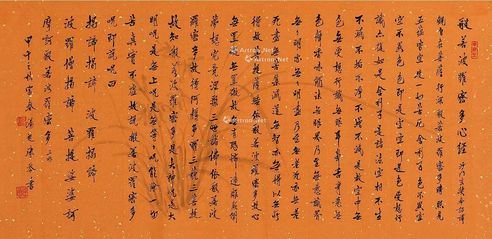 般若波羅蜜多心經
觀自在菩薩行深般若波羅蜜多時照見
五蘊皆空度一切苦厄舍利子色不異空
空不異色色即是空空即是色受想行
識亦復如是舍利子是諸法空相不生
不滅不垢不淨不增不減是故空中無
色無受想行識無眼耳鼻舌身意無
色聲香味觸法無眼界乃至無意識界
無無明亦無無明盡乃至無老死亦無老
死盡無苦集滅道無智亦無得以無所
得故菩提薩埵依般若波羅蜜多故心
無罣礙無罣礙故無有恐怖遠離顛倒
夢想究竟涅槃三世諸佛依般若波
羅蜜多故得阿耨多羅三藐三菩提
故知般若波羅蜜多是大神咒是大
明咒是無上咒是無等等咒能除一切
苦真實不虛故說般若波羅蜜多
咒即說咒曰
揭諦揭諦 波羅揭諦
波羅僧揭諦 菩提娑婆訶
摩訶般若波羅蜜多
書